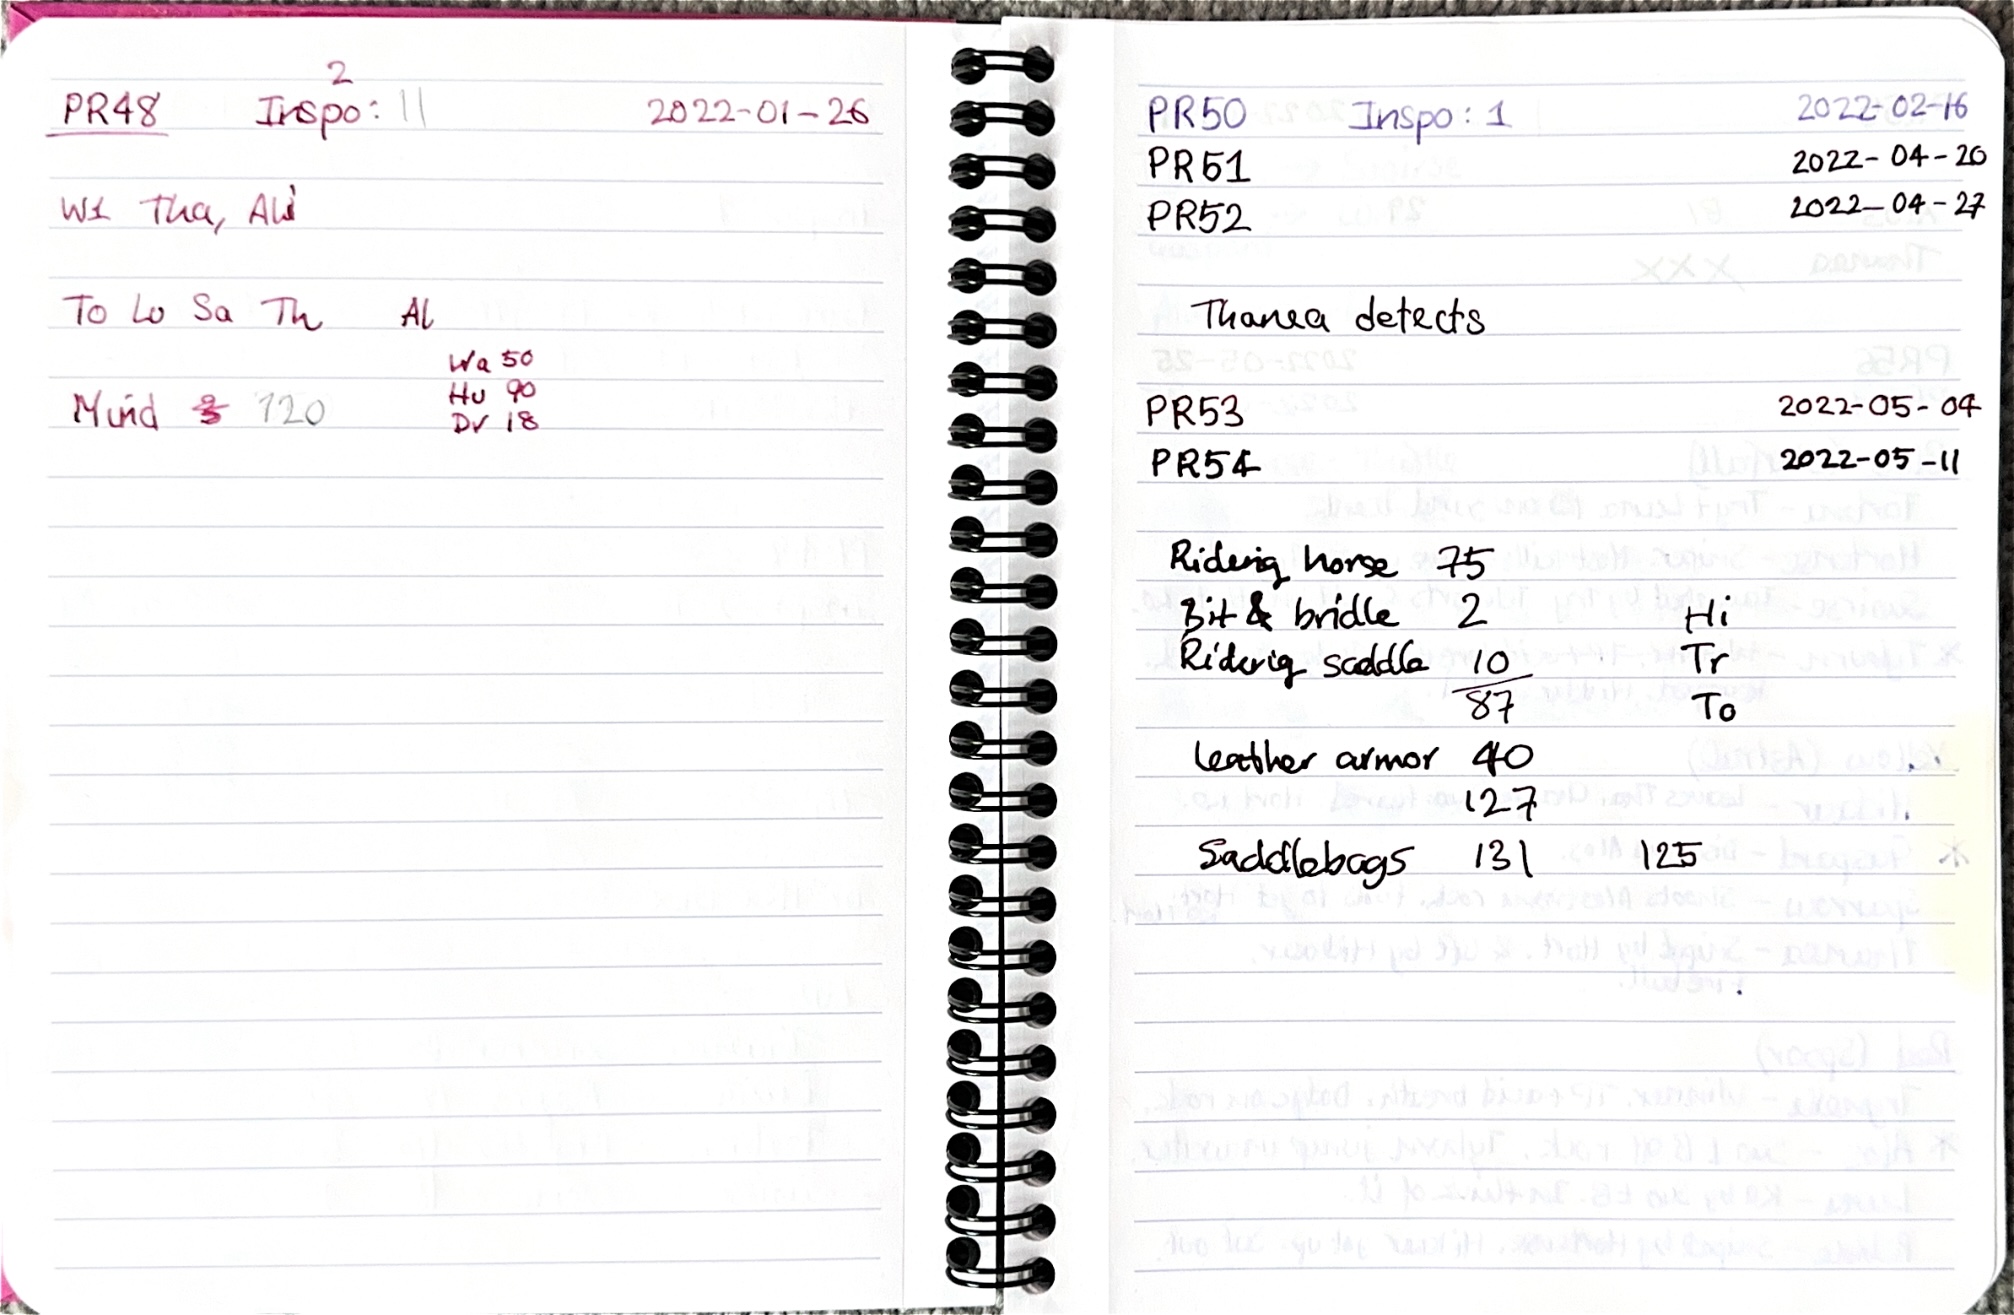 2
PR48 Inspo: || 2022-01-26
W1 Tha, Ali
To Lu Sa Th Al
Wa 50
Hu 90
Mind 120
Dr 18
PR50 Inspo: 1 2022-02-16
PR51 2022-04-20
PR52 2022-04-27
Thanea detects
PR53 2022-05-04
PR54 2022-05-11
Riding horse 75
Bit & bridle 2 Hi
Riding saddle 10 Tr
87 To
Leather armor 40
127
Saddlebags 131 125